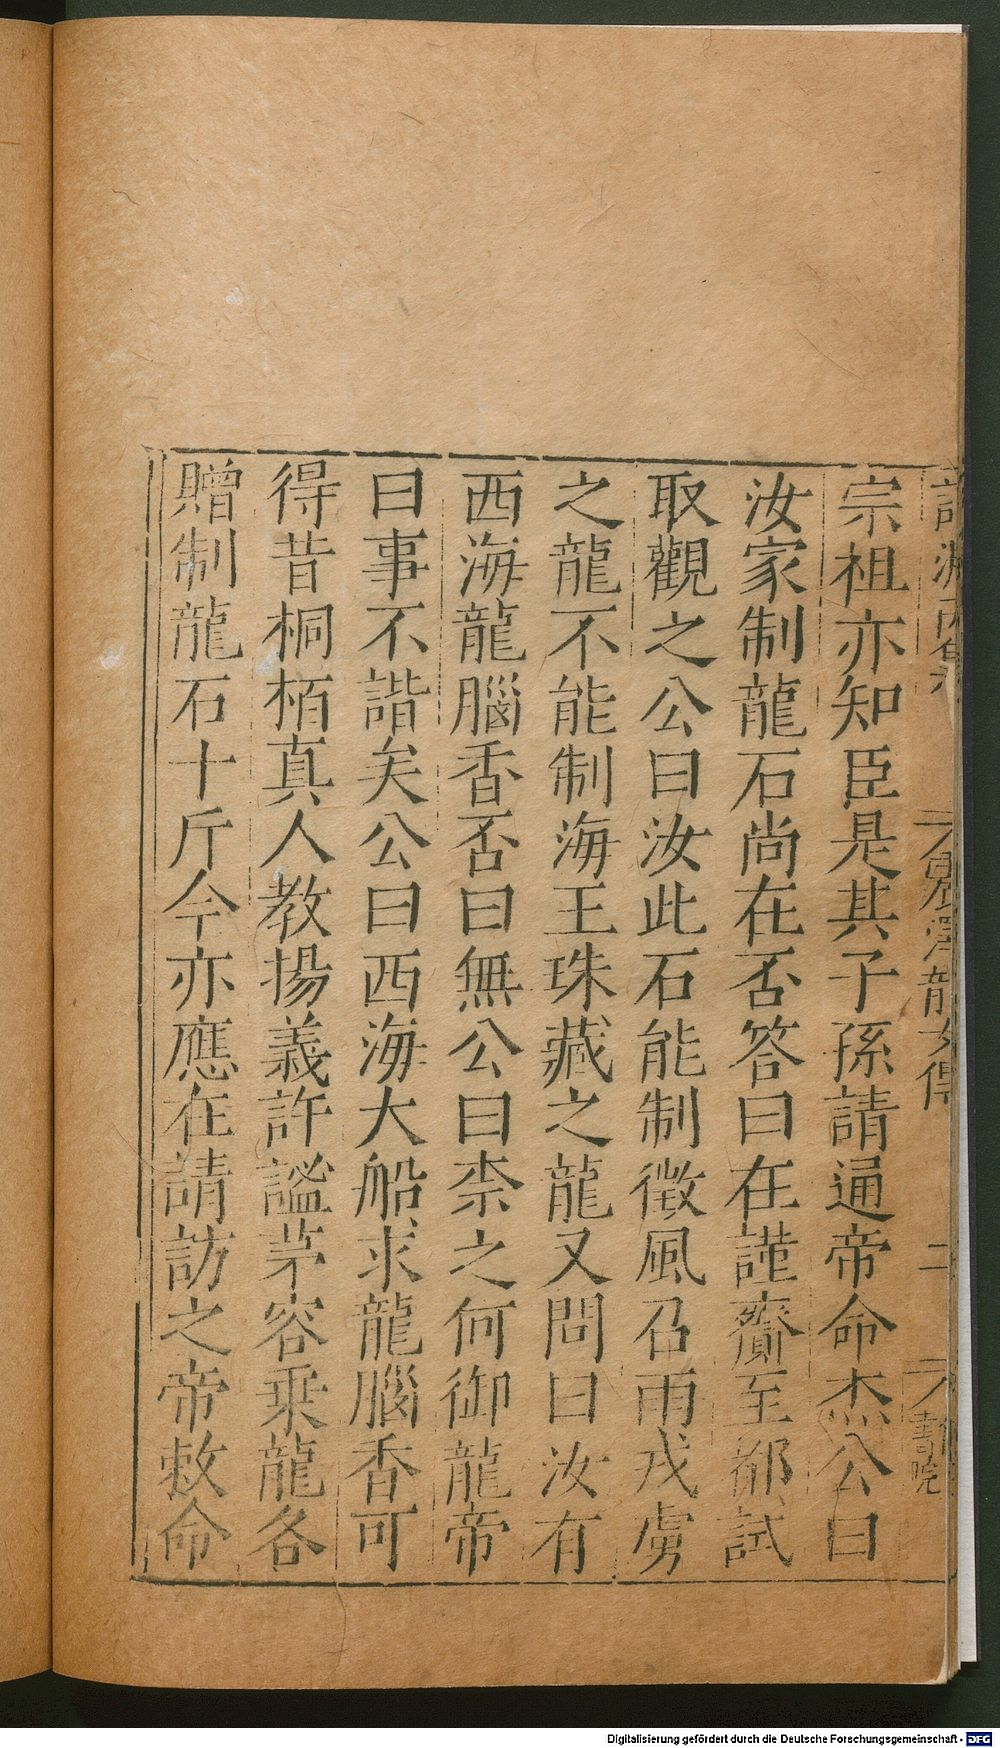 震澤龍女傳
二
書院
宗祖亦知臣是其子孫請通帝命杰公曰
汝家制龍石尚在否答曰在謹齎至都試
取觀之公曰汝此石能制徵風召雨戎虜
之龍不能制海王珠藏之龍又問曰汝有
西海龍腦香否曰無公曰柰之何御龍帝
曰事不諧矣公曰西海大船求龍腦香可
得昔桐栢真人教揚義許謐茅容乘龍各
贈制龍石十斤今亦應在請訪之帝敕命
Digitalisierung gefördert durch die Deutsche Forschungsgemeinschaft - DFG